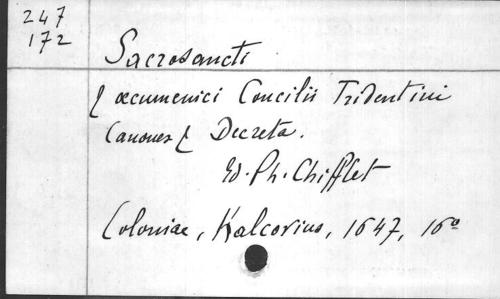 247
172
Sacrosancti
& œcumenici Concilii Tridentini
Canones & Decreta.
Ed. Ph. Chifflet
Coloniae, Kalcovius, 1647, 16º